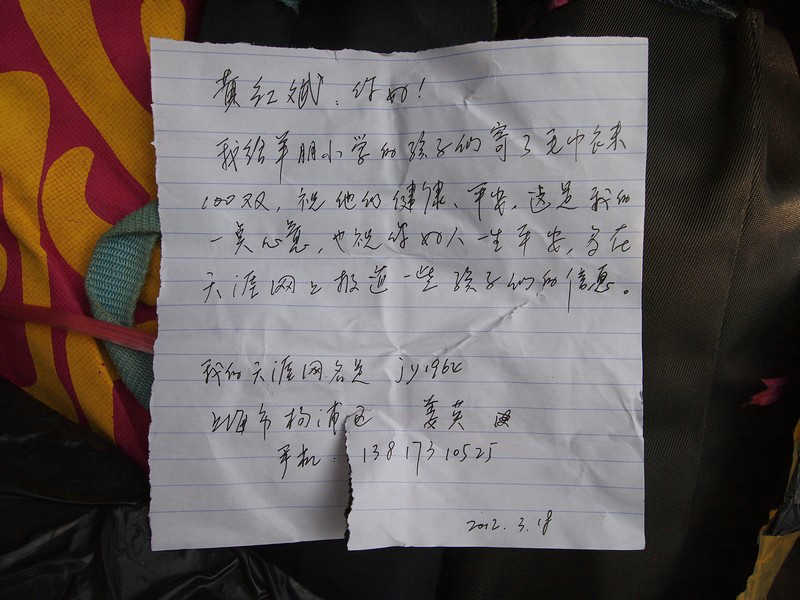 黄红斌：你好！
我给羊朋小学的孩子们寄了毛巾衣来
100双，祝他们健康、平安，这是我的
一点心意，也祝你好人一生平安，多在
天涯网上报道一些孩子们的信息。
我的天涯网名是 jy1962
上海市杨浦区 姜英
手机：13817310525
2012.3.18